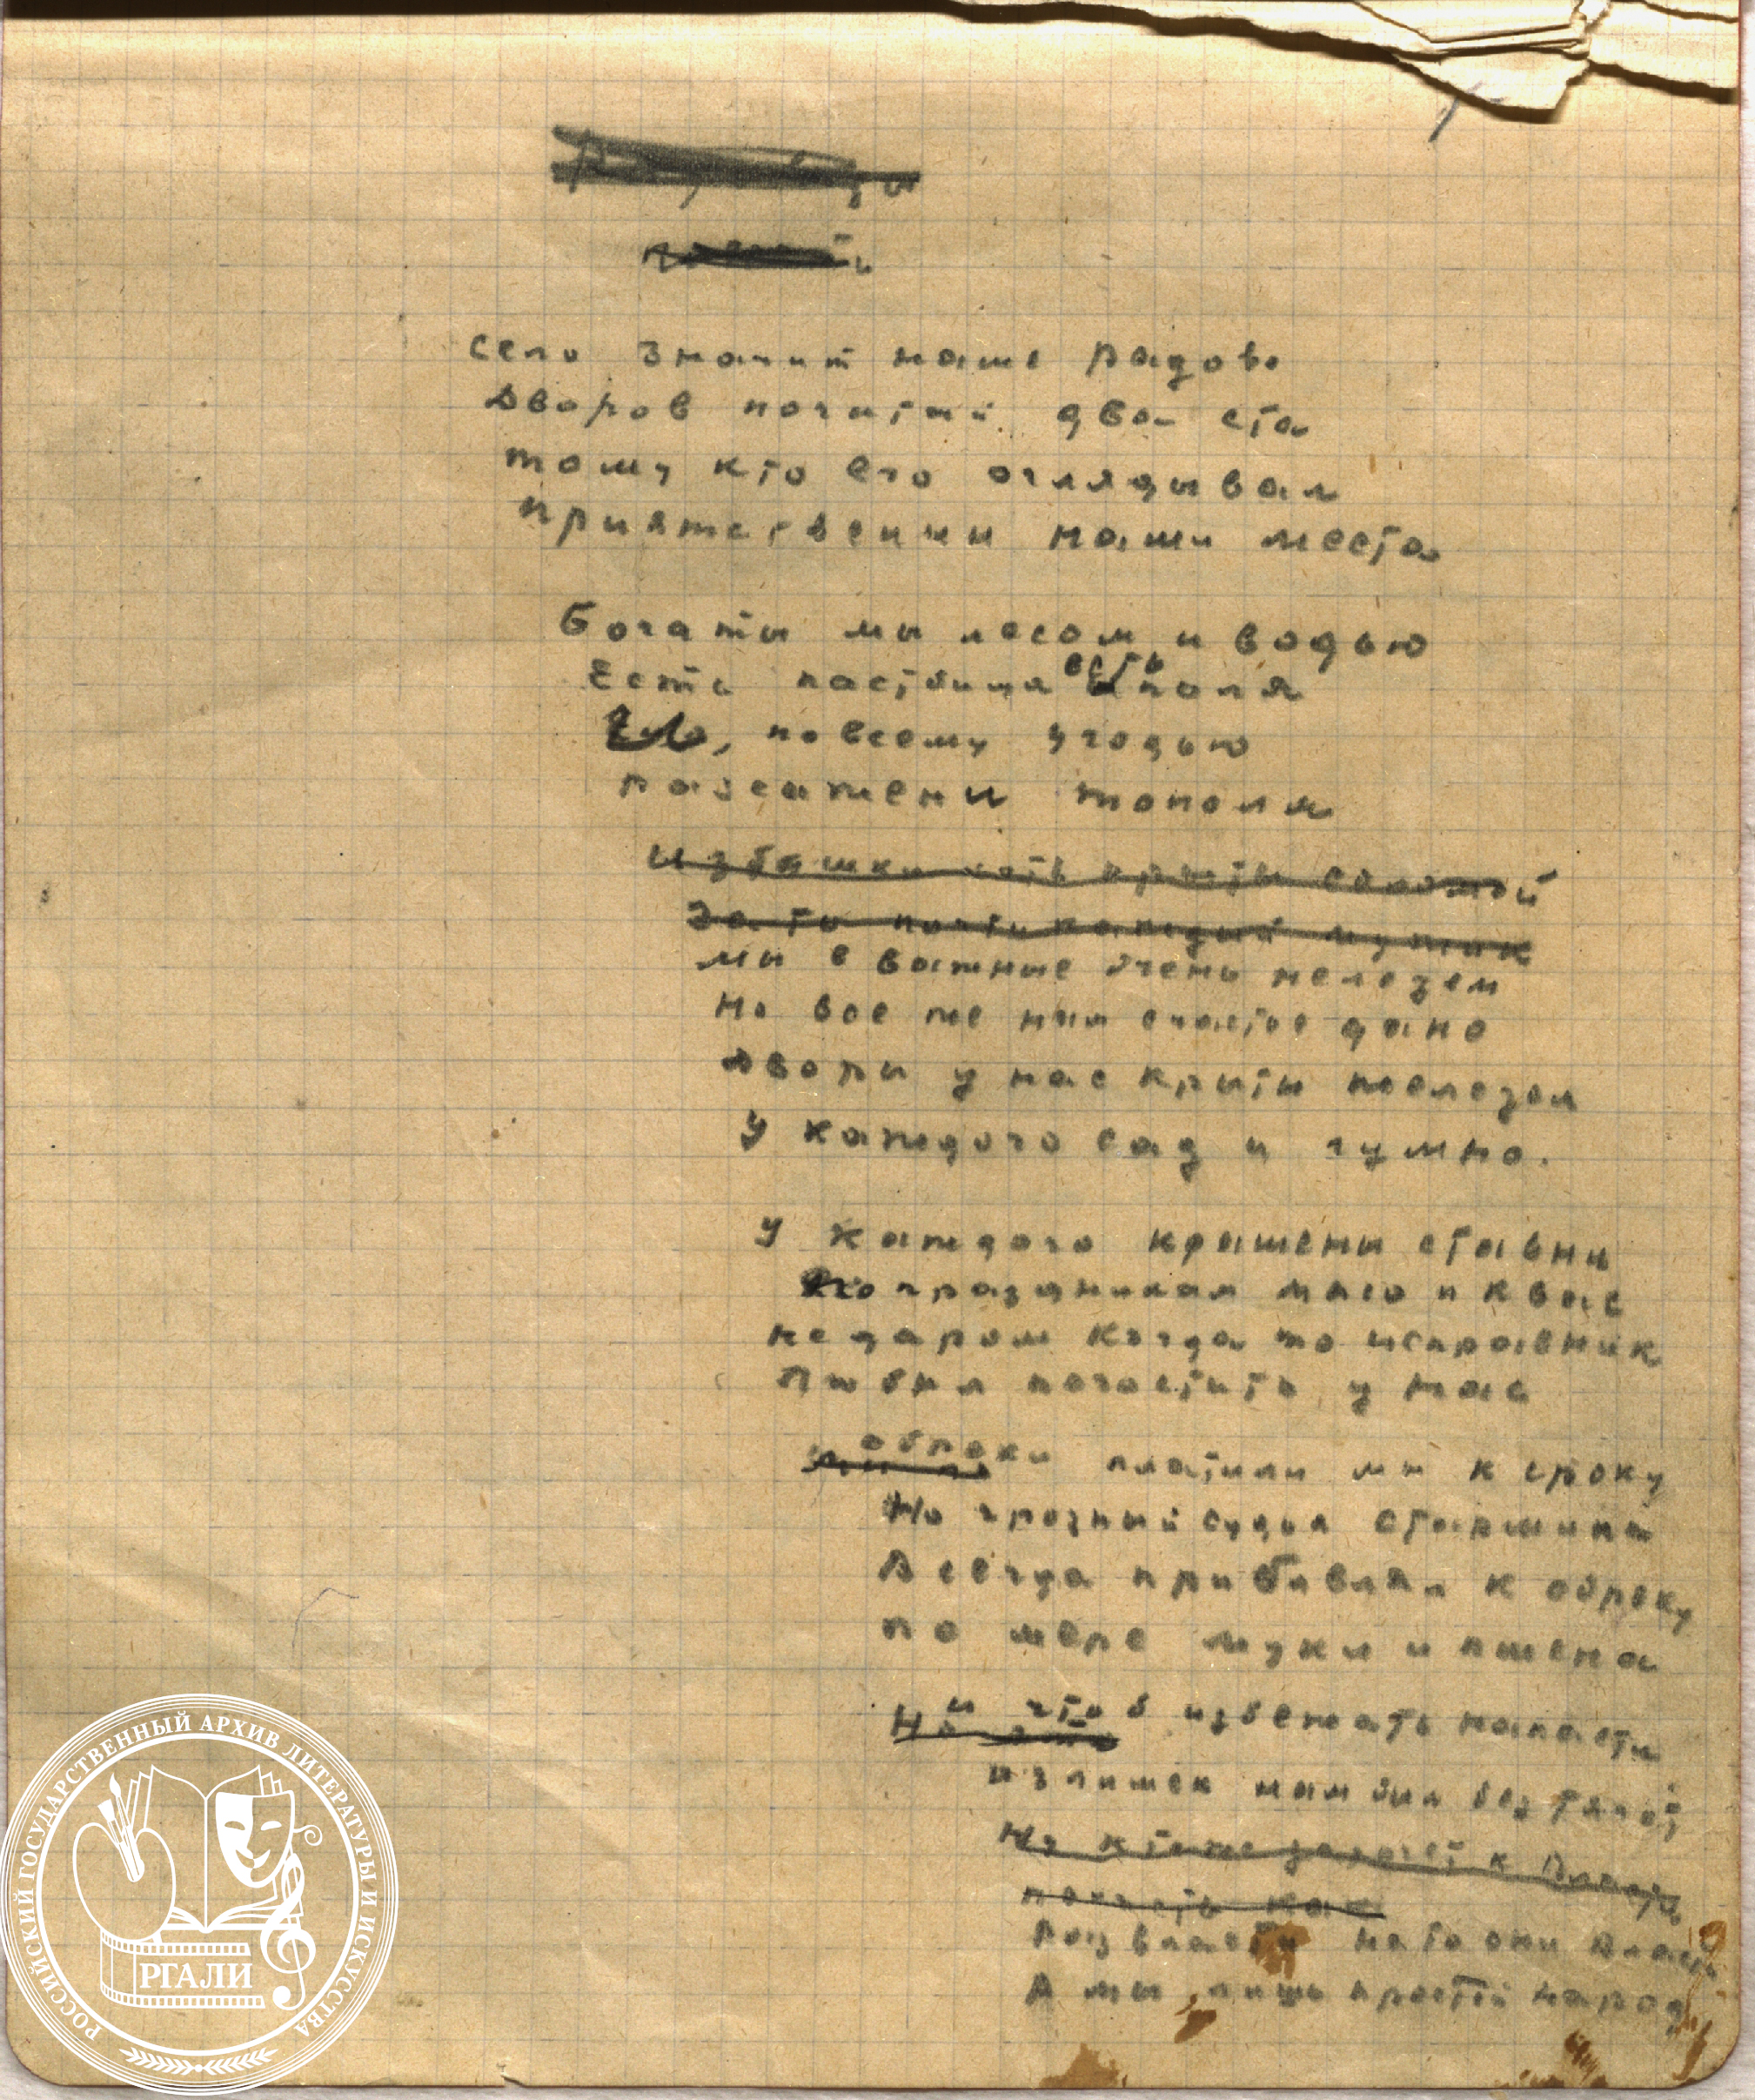 село значит наше радово
Дворов почитай два ста
тому кто его оглядывал
приятственны наши места
Богаты мы лесом и водью
есть
Есть пастбища поля
по всему угодью
разсажены тополя
избашки хоть крыты соломой
Зато почти каждый мужик
мы в важные очень нелезем
Но все же нам счастье дано
Дворы у нас крыты железом
У каждого сад и гумно.
У каждого крашены ставни
По праздникам мясо и квас
не даром когда то исправник
Любил погостить у нас
оброки платили мы к сроку
Но грозный судья старшина
Всегда прибавлял к оброку
по мере муки и пшена
и чтоб избежать напасти
излишек нам был без тягот
Но кто же
почесть как
Раз власти на то они власти
А мы лишь простой народ
РОССИЙСКИЙ ГОСУДАРСТВЕННЫЙ АРХИВ ЛИТЕРАТУРЫ И ИСКУССТВА
РГАЛИ